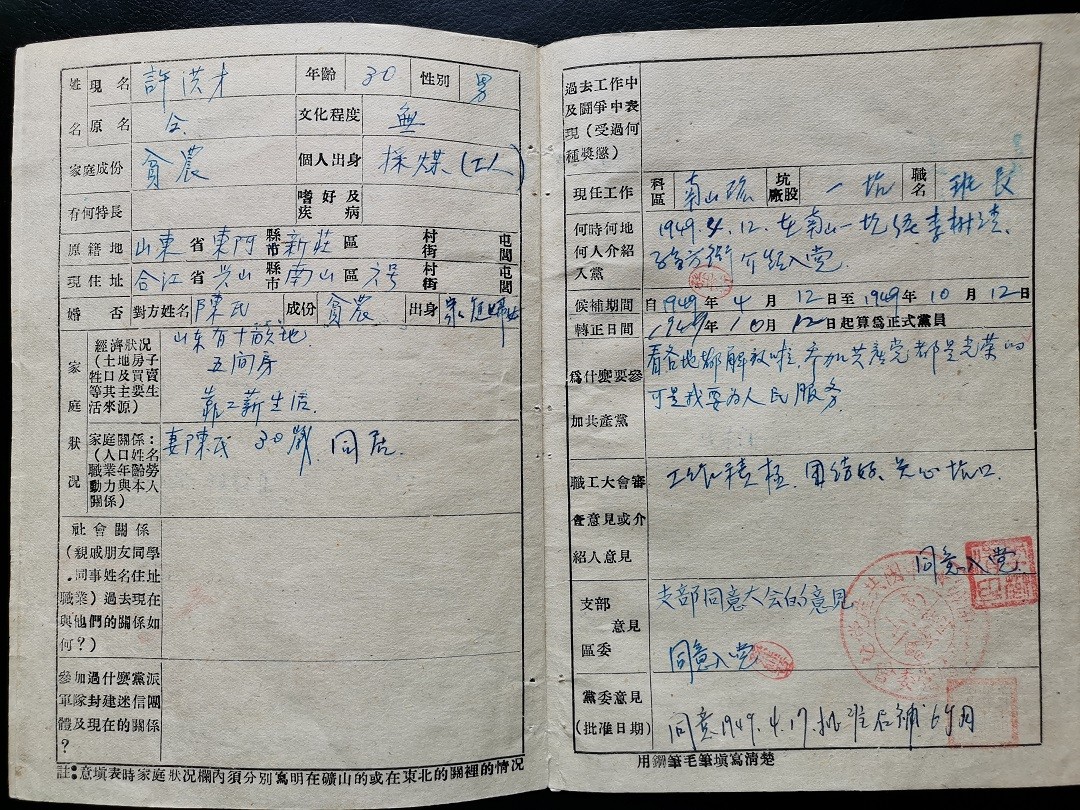 姓 現名 許洪才 年齡 30 性別 男
名 原名 仝 文化程度 無
家庭成份 貧農 個人出身 採煤(工人)
有何特長 嗜好及疾病
原籍地 山東省 東阿縣市 新莊區 村街 屯閭
現住址 合江省 兴山縣市 南山區 六号 村街 屯閭
婚否 對方姓名 陳氏 成份 貧農 出身 家庭婦女
家庭狀況
經濟狀況
(土地房子
牲口及買賣
等其主要生
活來源)
山东有十畝地
五间房
靠工薪生活.
家庭關係:
(人口姓名
職業年齡勞
動力與本人
關係)
妻陳氏 30歲 同居.
社會關係
(親戚朋友同學
.同事姓名住址
職業)過去現在
與他們的關係如
何?)
參加過什麼黨派
軍隊封建迷信團
體及現在的關係
?
註:意填表時家庭狀況欄內須分別寫明在礦山的或在東北的關裡的情况
過去工作中
及鬪爭中表
現(受過何
種獎懲)
現任工作 科區 南山 坑廠股 一坑 職名 班長
何時何地
何人介紹
入黨
1949.4.12.在南山一坑 李树
介紹入党.
候補期間 自1949年4月12日至1949年10月12日
轉正日間 1949年10月12日起算爲正式黨員
爲什麼要參
加共產黨
看各地都解放啦.参加共產党都是光荣的
可是我要为人民服务
職工大會審
查意見或介
紹人意見
工作積極.團结好.关心坑口.
同意入党.
支部
意見
區委
支部同意大会的意見
同意入党
黨委意見
(批准日期)
同意1949.4.17.批准后補6個月
用鋼筆毛筆填寫清楚